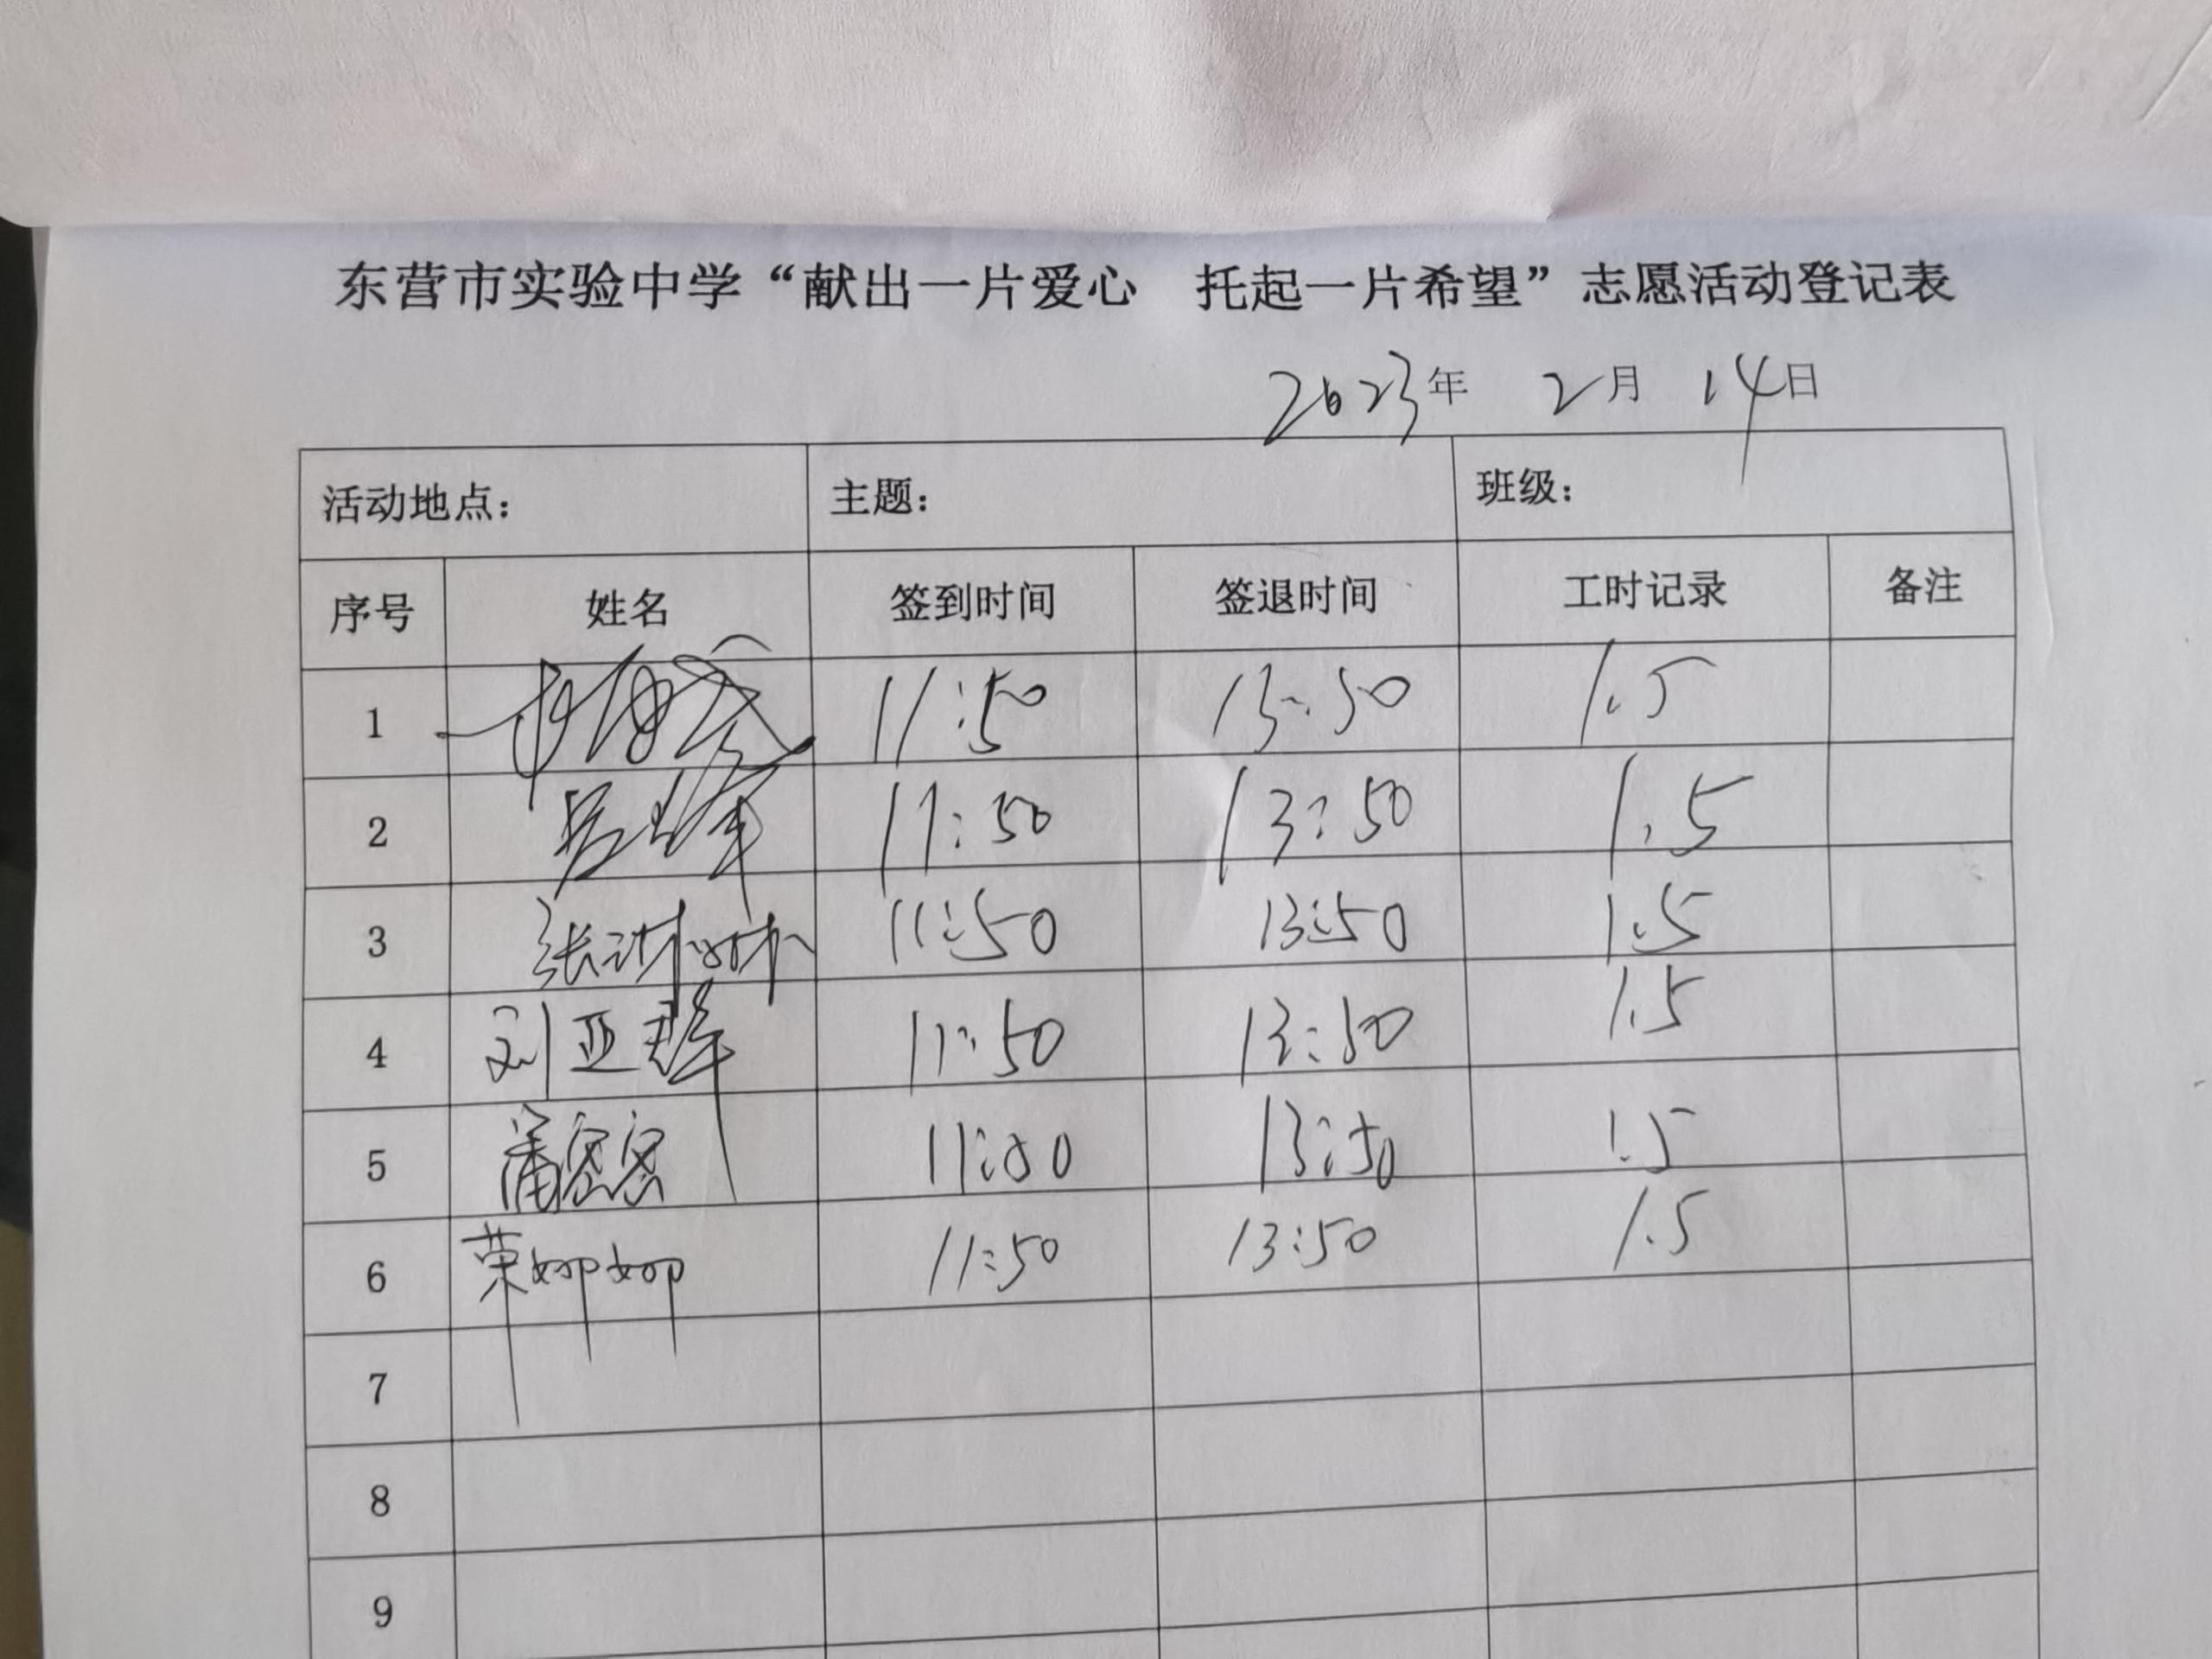 东营市实验中学“献出一片爱心 托起一片希望”志愿活动登记表
2023年 2月 14日
活动地点: 主题: 班级:
序号 姓名 签到时间 签退时间 工时记录 备注
1 11:50 13:50 1.5
2 11:50 13:50 1.5
3 张琳琳 11:50 13:50 1.5
4 刘亚琴 11:50 13:50 1.5
5 潘密密 11:50 13:50 1.5
6 荣娜娜 11:50 13:50 1.5
7
8
9